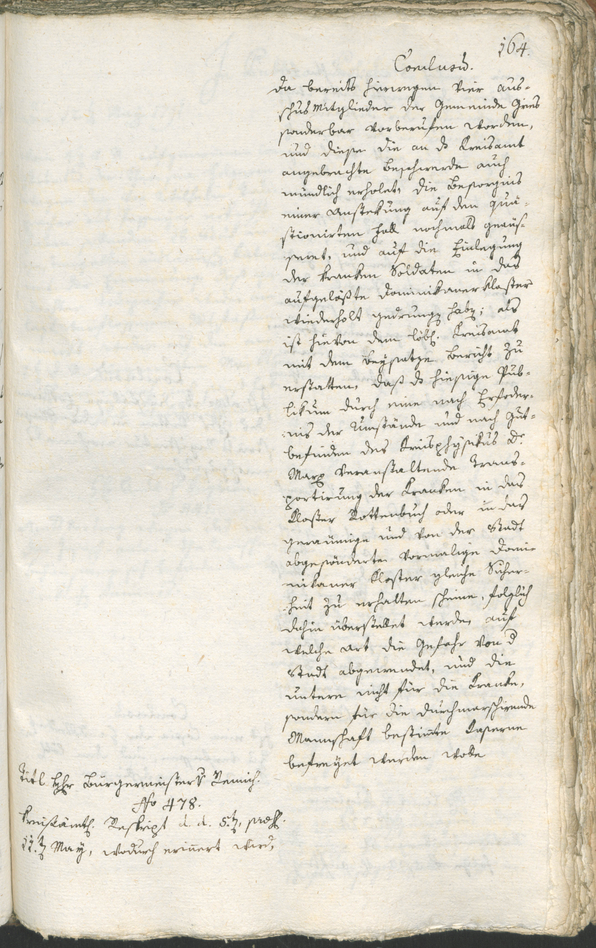 164.
Conclusum.
da bereits hinwegen vier aus-
schus Mitglieder der Gemeinde Gries
sonderbar vorberufen worden,
und diese die an ds Kreisamt
angebrachte Beschwerde auch
mündlich erholet, die Besorgnis
einer Anstekung auf den quæ-
stionirten Fall nochmals geäus-
seret, und auf die Einlegung
der kranken Soldaten in das
aufgelößte Dominikaner Kloster
wiederholt gedrungen haben; als
ist hievon dem löbl. Kreisamt
mit dem Beysatze Bericht zu
erstatten, daß ds hiesige Pub-
likum durch eine nach Erforder-
nis der Umstände und nach Gut-
befinden des Kreisphysikus Dr.
Marx veranstaltende Trans-
portirung der Kranken in das
Kloster Rottenbuch oder in das
geräumige und von der Stadt
abgesönderte vormalige Domi-
nikaner Kloster gleiche Sicher-
heit zu erhalten scheine, folglich
dahin überstellet werden, auf
welche Art die Gefahr von d
Stadt abgewendet, und die
untere nicht für die Kranke,
sondern für die durchmarschirende
Mannschaft bestimte Caserne
befreyet werden wolle
Titl Hhr Bürgermeisters Remich.
No 478.
Kreisämtl. Reskript d. d. 5t, præs.
12t May, wodurch erinert wird,